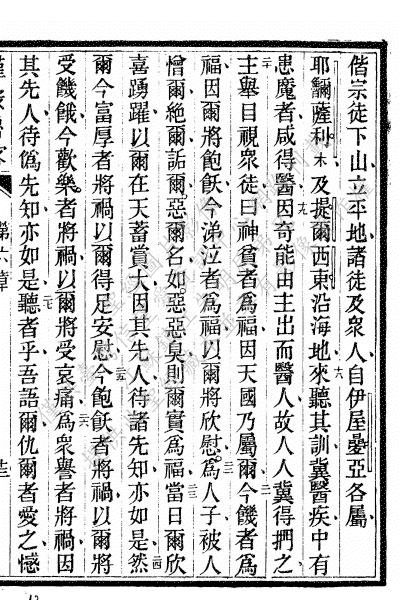 偕宗徒下山立平地諸徒及衆人自伊屋疊亞各屬
耶䤄薩利木及提爾西東沿海地來聽其訓冀醫疾中有
患魔者咸得醫因奇能由主出而醫人故人人冀得捫之
主舉目視衆徒曰神貧者為福因天國乃屬爾今饑者為
福因爾將飽飫今涕泣者為福以爾將欣慰為人子被人
憎爾絕爾詬爾惡爾名如惡惡臭則爾實為福當日爾欣
喜踴躍以爾在天蓄賞大因其先人待諸先知亦如是然
爾今富厚者將禍以爾得足安慰今飽飫者將禍以爾將
受饑餓今歡樂者將禍以爾將受哀痛為衆譽者將禍因
其先人待僞先知亦如是聽者乎吾語爾仇爾者愛之憾
第六章